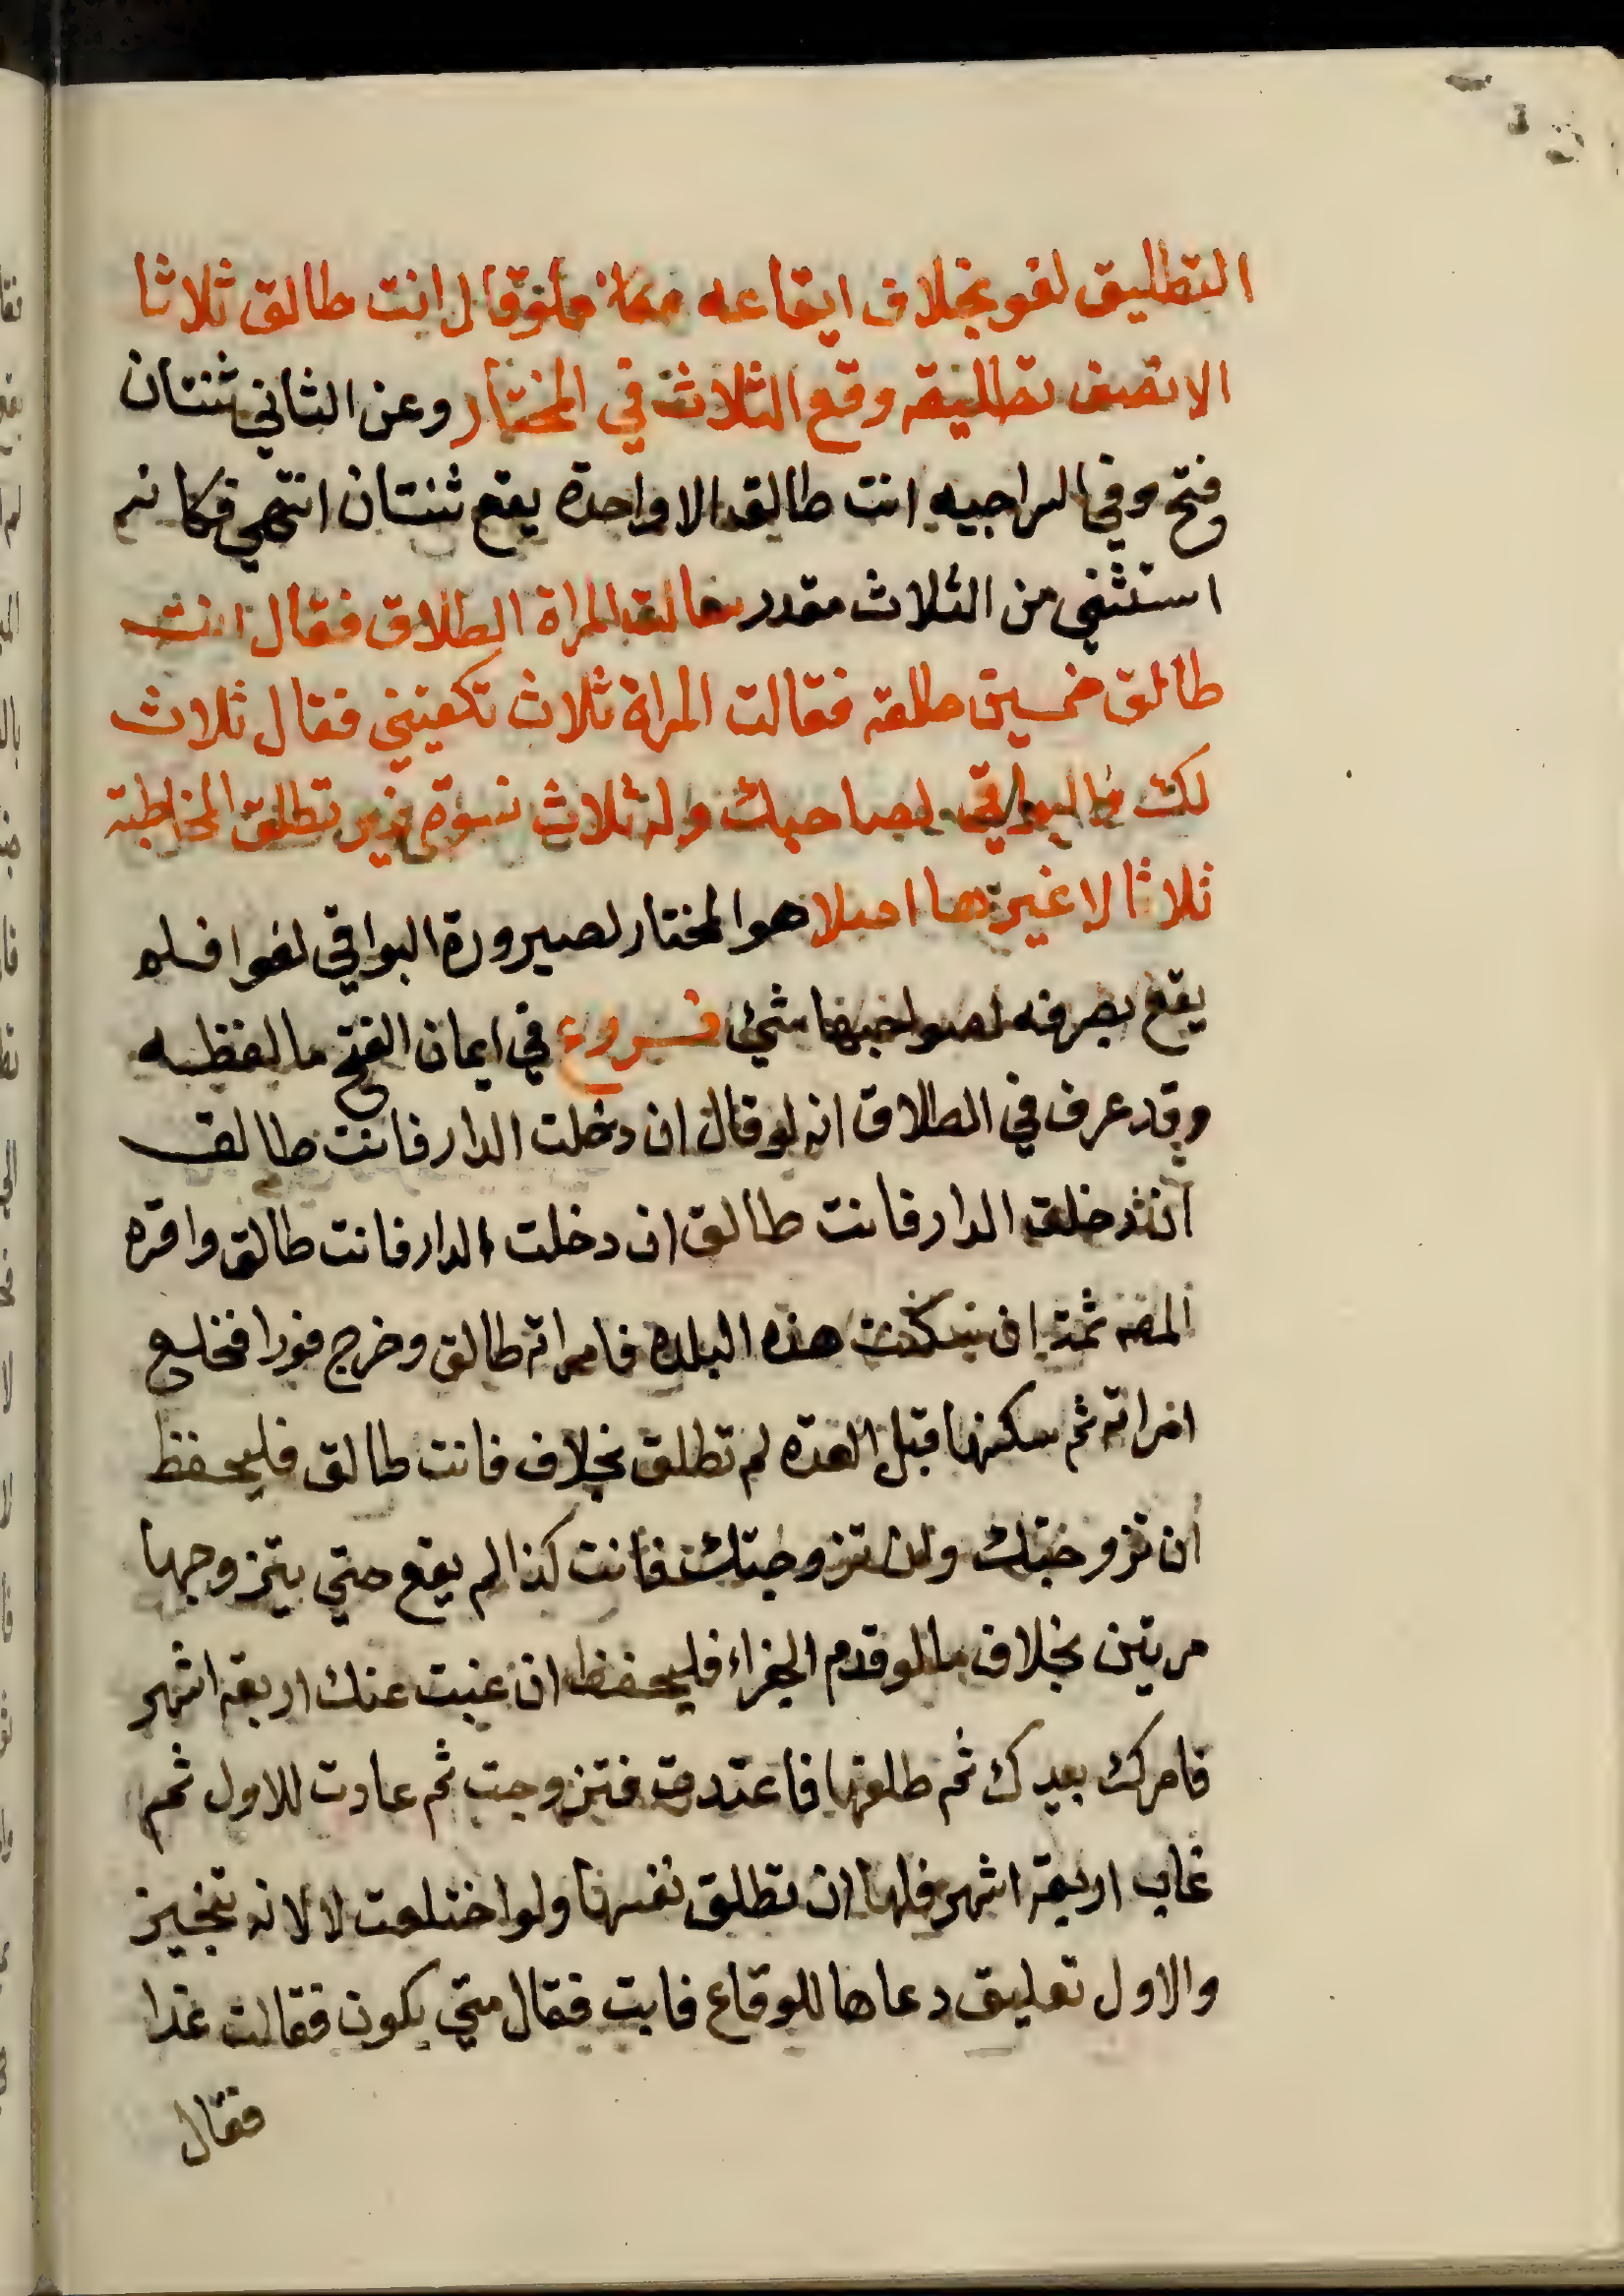 التطليق لغو بخلاف ايقاعه فلو قال انت طالق ثلاثا
الا نصف تطليقة وقع الثلاث في المختار وعن الثاني ثنتان
فتح وفي السراجيه انت طالق الا واحدة يقع ثنتان انتهي فكانه
استثني من الثلاث مقدر سالت المراة الطلاق فقال انت
طالق خمسين طلقة فقالت المراة ثلاث تكفيني فقال ثلاث
لك والبواقي لصاحبك وله ثلاث نسوة غير تطلق المخاطبة
ثلاثا لا غيرها اصلا هو المختار لصيرورة البواقي لغوا فلم
يقع بصرفه لصواحبها شئ فروع في ايمان الفتح ما لفظه
وقد عرف في الطلاق انه لو قال ان دخلت الدار فانت طالق
ان دخلت الدار فانت طالق ان دخلت الدار فانت طالق واقره
المصنف ثمة ان سكنت هذه البلده فامراته طالق وخرج فورا فخلع
امراته ثم سكنها قبل العده لم تطلق بخلاف فانت طالق فليحفظ
ان تزوجتك وان تزوجتك فانت كذا لم يقع حتي يتزوجها
مرتين بخلاف ما لو قدم الجزاء فليحفظ ان غبت عنك اربعة اشهر
فامرك بيدك ثم طلقها فاعتدت فتزوجت ثم عادت للاول ثم
غاب اربعة اشهر فلها ان تطلق نفسها ولو اختلعت لا لانه تنجيز
والاول تعليق دعاها للوقاع فابت فقال متي يكون فقالت غدا
فقال